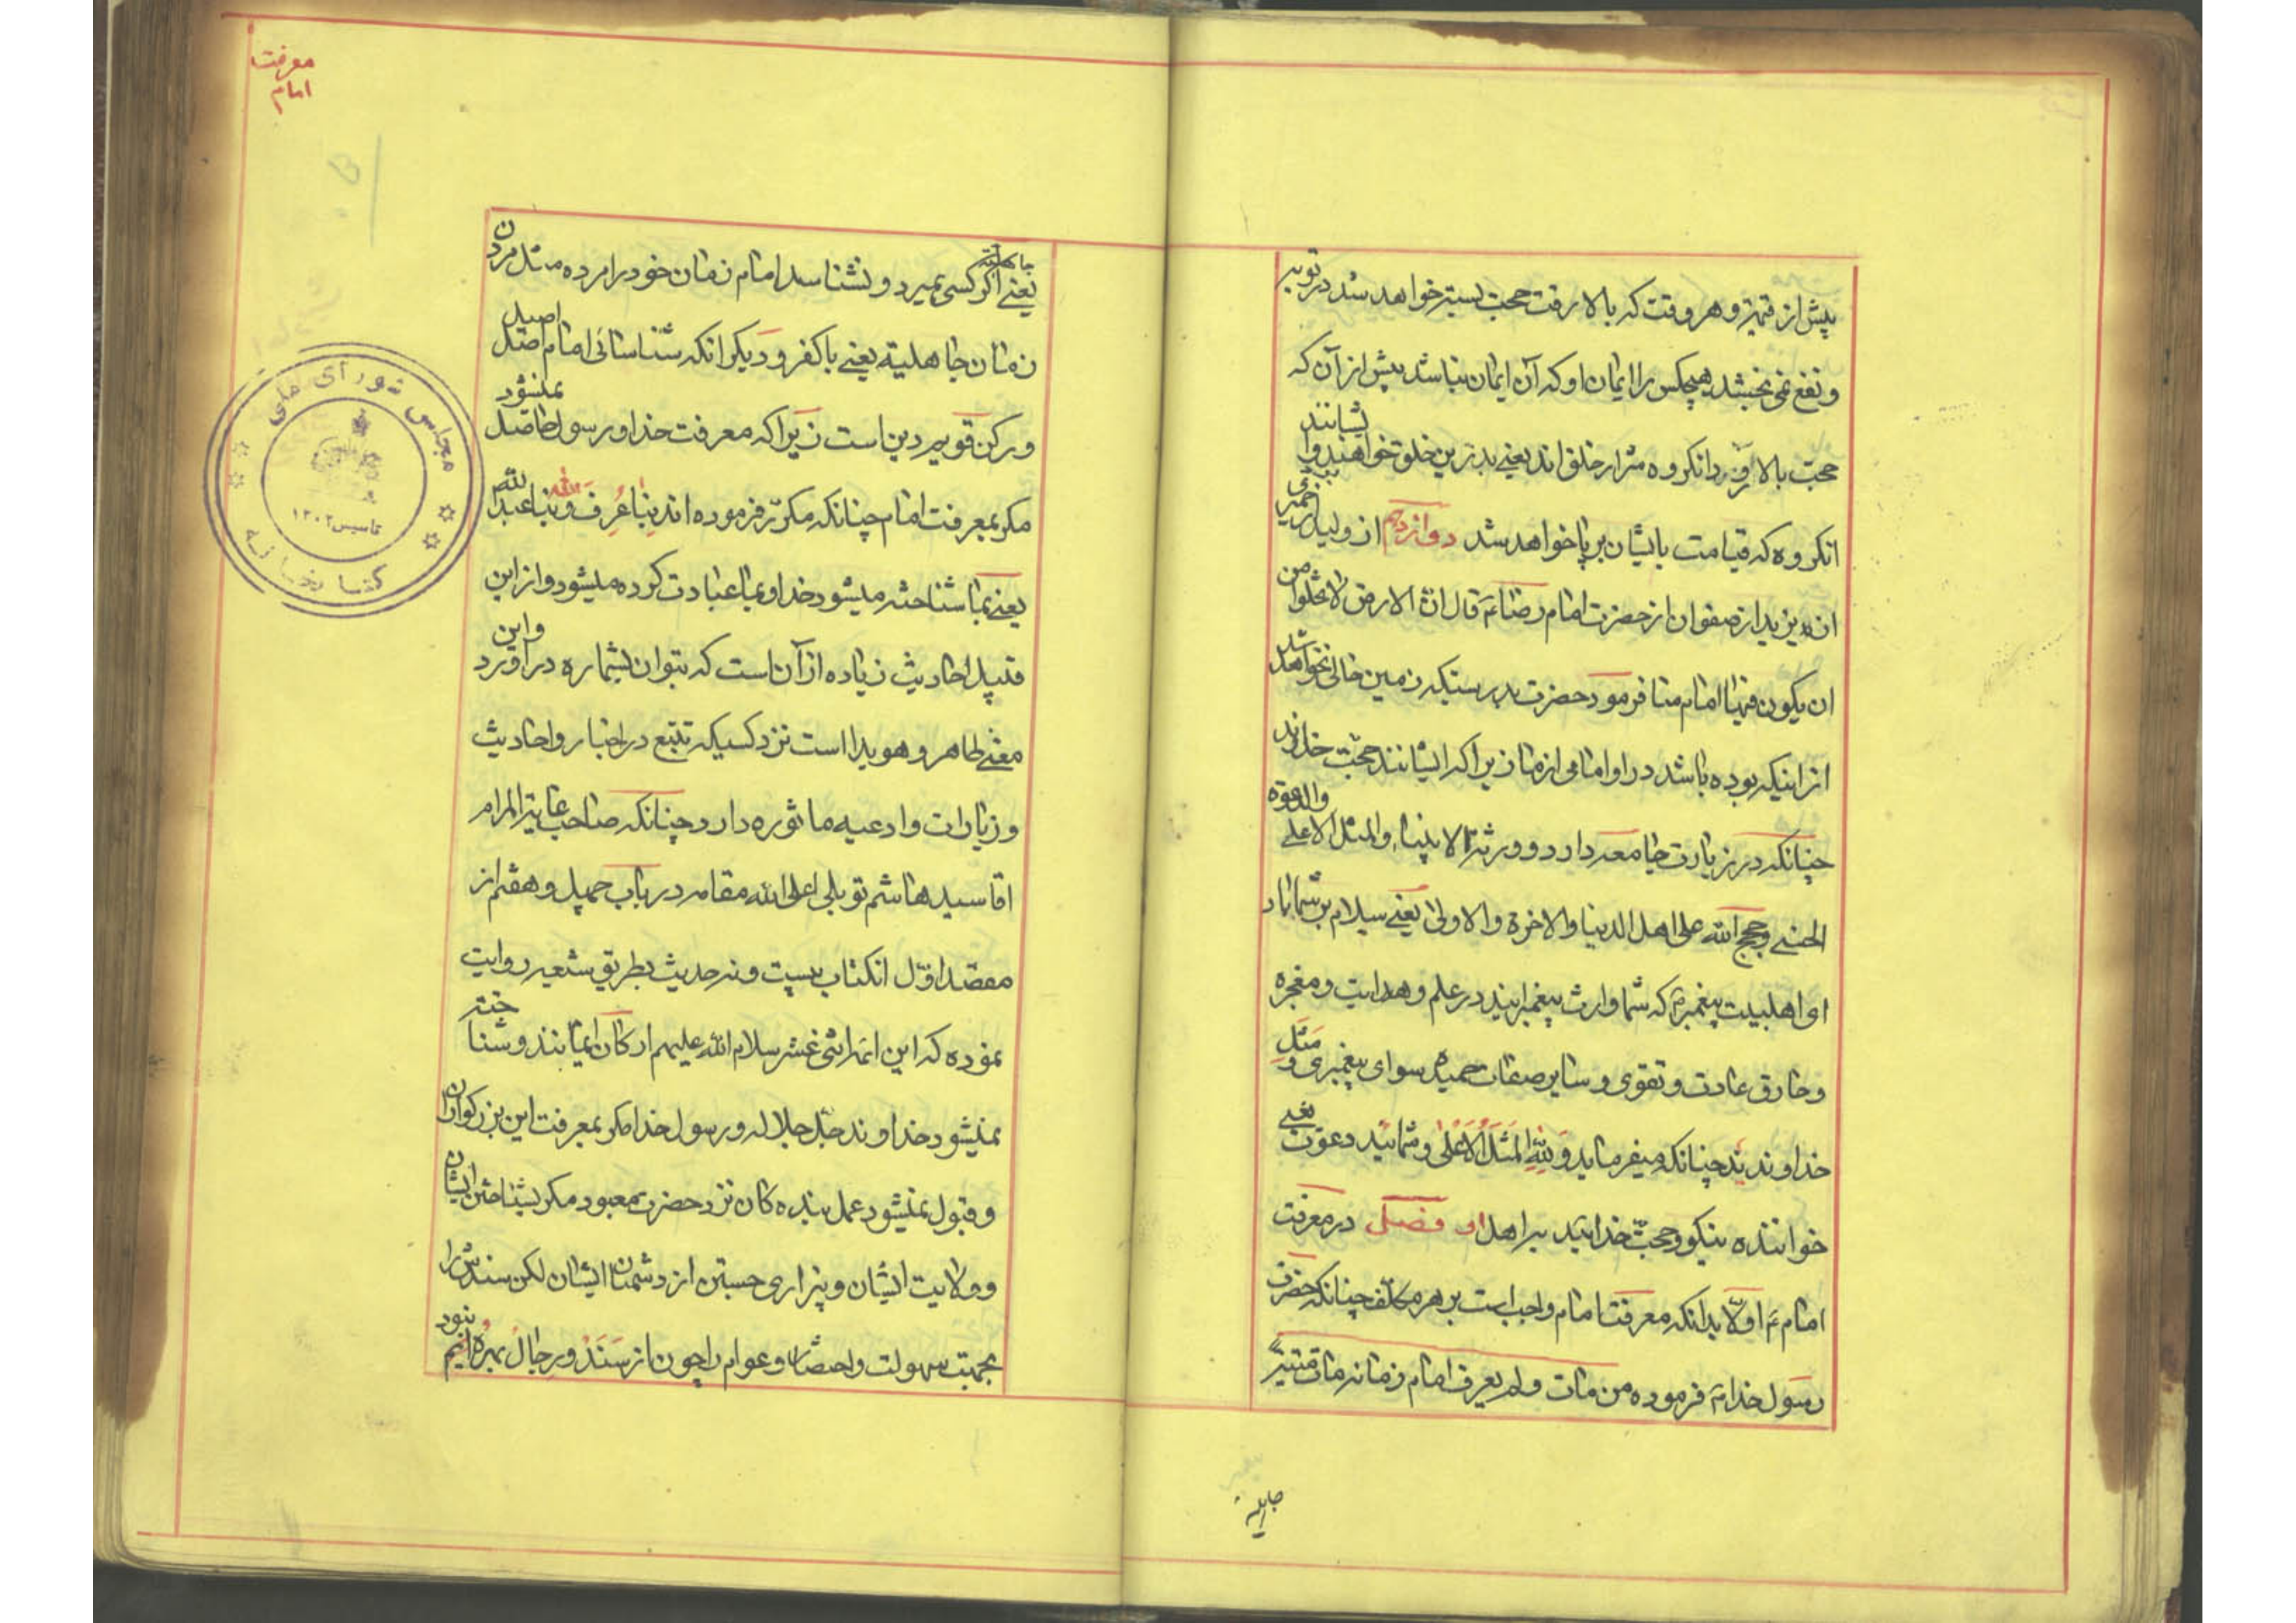 پیش از قیمة و هر وقت که بالا رفت حجت بسته خواهد شد در توبه
و نفع نمی بخشد هیچکس را ایمان او که آن ایمان نباشد پیش از آن که
حجت بالا رود انکروه شرار خلق اند یعنی بدترین خلق خواهند بود ایشانند
انکروه که قیامت بایشان بر پا خواهد شد دوازدهم از ولید
ابن یزید از صفوان از حضرت امام رضا ع قال ان الارض لا تخلوا من
ان یکون فیها امام منا فرمود حضرت بدرستیکه زمین خالی نخواهد شد
از اینکه بوده باشد در او امامی از ما زیرا که ایشانند حجت خداوند
چنانکه در زیارت جامعه دارد و ورثة الانبیاء والمثل الاعلی والدعوة
الحسنی وحجج الله علی اهل الدنیا والاخرة والاولی یعنی سلام بر شما باد
ای اهلبیت پیغمبر که شما وارث پیغمبرانید در علم و هدایت و معجزه
و خارق عادت و تقوی و سایر صفات حمیده سوای پیغمبری و مثل
خداوندید چنانکه میفرماید وَلِلّهِ المَثَلُ الاَعْلی و شمائید دعوت یعنی
خواننده نیکو و حجت خدائید بر اهل او فصل در معرفت
امام ع اولا بدانکه معرفت امام واجب است بر هر مکلف چنانکه حضرت
رسول خدا فرموده من مات ولم یعرف امام زمانه مات میتةً
جاهلیة
معرفت
امام
جاهلیة
یعنی اکر کسی بمیرد و نشناسد امام زمان خود را مرده مثل مردن
زمان جاهلیة یعنی با کفر و دیکر انکه شناسائی امام اصل اصیل
و رکن قویم دین است زیرا که معرفت خدا و رسول حاصل نمیشود
مکر بمعرفت امام چنانکه مکرّر فرموده اند بِنا عُرِفَ الله و بنا عبد الله
یعنی بما شناخته میشود خدا و بما عبادت کرده میشود و از این
قبیل احادیث زیاده از آن است که بتوان بشماره در آورد و این
معنی ظاهر و هویدا است نزد کسیکه تتبع در اخبار و احادیث
و زیارات و ادعیه ماثوره دارد چنانکه صاحب غایة المرام
اقا سید هاشم توبلی اعلی الله مقامه در باب چهل و هفتم از
مقصد اوّل انکتاب بیست و نه حدیث بطریق شیعه روایت
نموده که این ائمه اثنی عشر سلام الله علیهم ارکان ایمانند و شناخته
نمیشود خداوند جل جلاله و رسول خدا مکر بمعرفت این بزرکواران
و قبول نمیشود عمل بنده کان نزد حضرت معبود مکر بشناختن ایشان
و ولایت ایشان و بیزاری جستن از دشمنان ایشان لکن سندش را
بجهت سهولت و اختصار و عوام را چون از سَنَدْ و رجال بهرهٔ نبود
مجلس شورای ملی
تاسیس ۱۳۰۲
کتابخانه